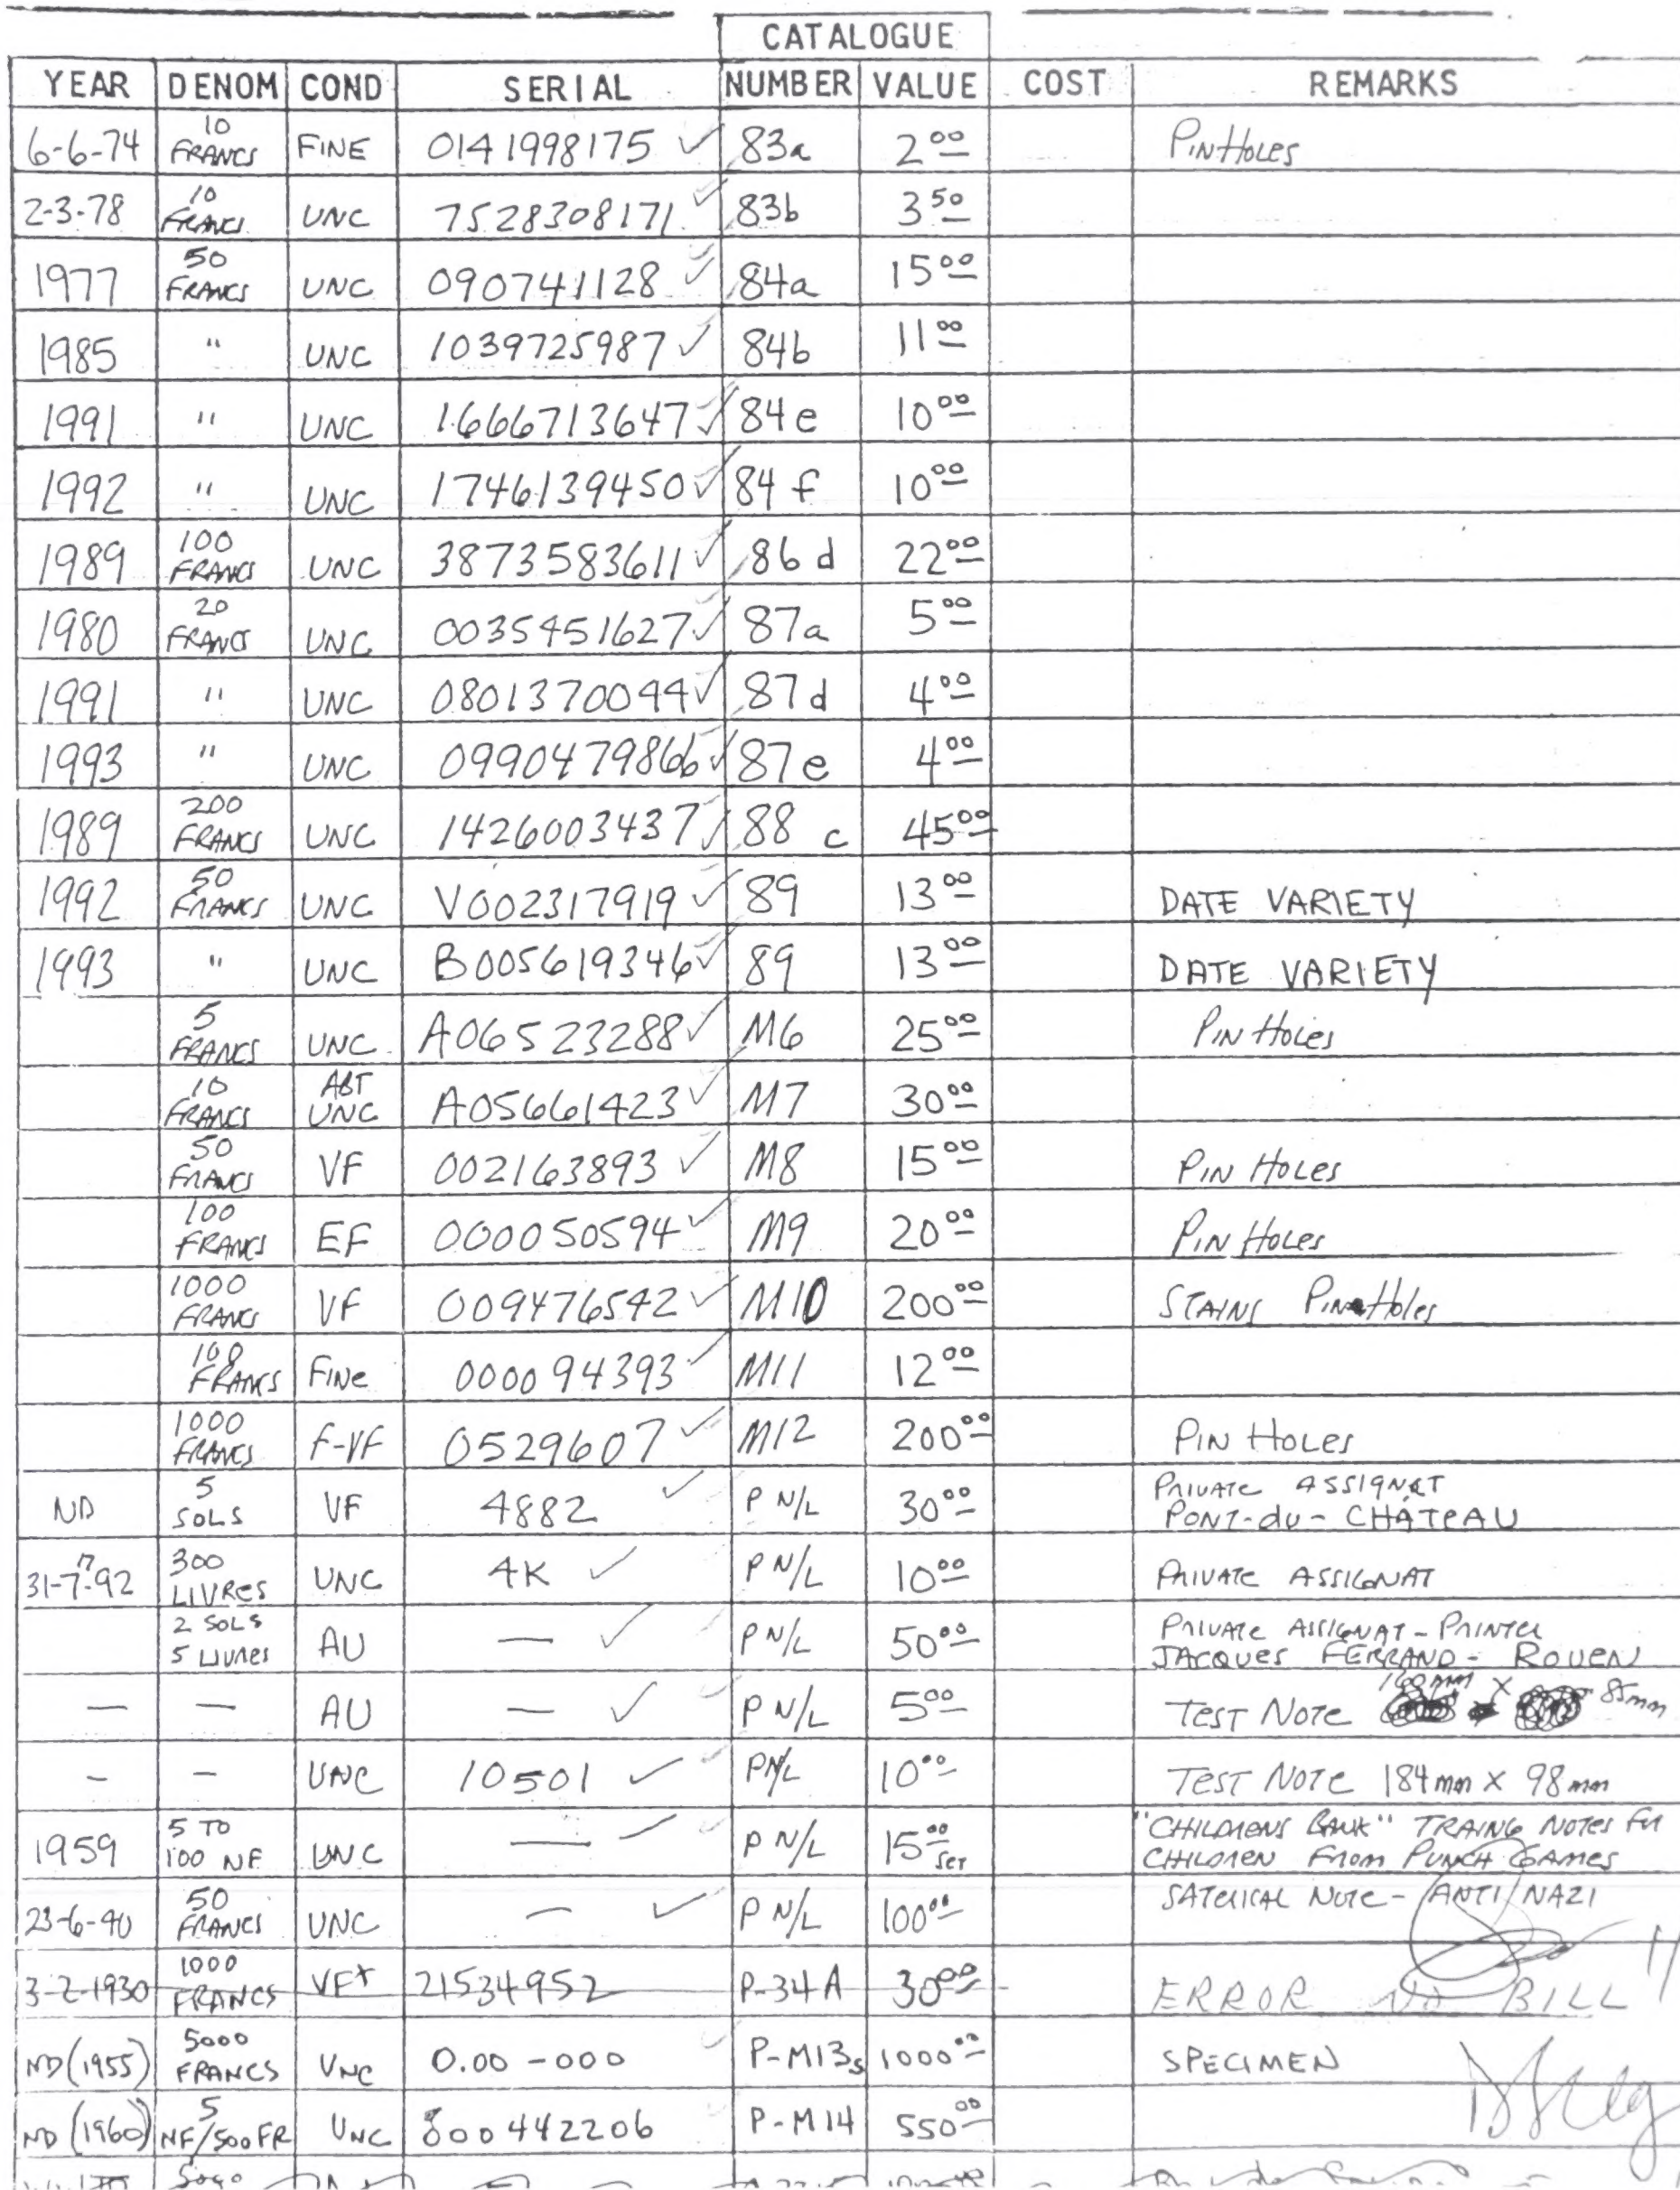 CATALOGUE
YEAR DENOM COND SERIAL NUMBER VALUE COST REMARKS
6-6-74 10 FRANCS FINE 0141998175 ✓ 83a 2 00 PinHoles
2-3-78 10 FRANCS UNC 7528308171 ✓ 83b 3 50
1977 50 FRANCS UNC 090741128 ✓ 84a 15 00
1985 " UNC 1039725987 ✓ 84b 11 00
1991 " UNC 1666713647 ✓ 84e 10 00
1992 " UNC 1746139450 ✓ 84f 10 00
1989 100 FRANCS UNC 3873583611 ✓ 86d 22 00
1980 20 FRANCS UNC 0035451627 ✓ 87a 5 00
1991 " UNC 0801370044 ✓ 87d 4 00
1993 " UNC 0990479866 ✓ 87e 4 00
1989 200 FRANCS UNC 1426003437 ✓ 88 c 45 00
1992 50 FRANCS UNC V002317919 ✓ 89 13 00 DATE VARIETY
1993 " UNC B005619346 ✓ 89 13 00 DATE VARIETY
5 FRANCS UNC A06523288 ✓ M6 25 00 Pin Holes
10 FRANCS ABT UNC A05661423 ✓ M7 30 00
50 FRANCS VF 002163893 ✓ M8 15 00 Pin Holes
100 FRANCS EF 000050594 ✓ M9 20 00 Pin Holes
1000 FRANCS VF 009476542 ✓ M10 200 00 STAINS Pin Holes
100 FRANCS Fine 000094393 ✓ M11 12 00
1000 FRANCS F-VF 0529607 ✓ M12 200 00 Pin Holes
ND 5 SOLS VF 4882 ✓ P N/L 30 00 PRIVATE ASSIGNAT
PONT-du-CHÁTEAU
31-7-92 300 LIVRES UNC 4K ✓ P N/L 10 00 PRIVATE ASSIGNAT
2 SOLS 5 Livres AU — ✓ P N/L 50 00 PRIVATE ASSIGNAT - PRINTER
JACQUES FERRAND - ROUEN
— — AU — ✓ P N/L 5 00 TEST NOTE 168mm X 85mm
— — UNC 10501 ✓ P N/L 10 00 TEST NOTE 184mm X 98mm
1959 5 TO 100 NF UNC — ✓ P N/L 15 00 SET "CHILDRENS BANK" TRAING NOTES For
CHILDREN From PUNCH GAMES
23-6-40 50 FRANCS UNC — ✓ P N/L 100 00 SATERICAL NOTE - ANTI NAZI
3-2-1930 1000 FRANCS VF+ 21534952 P-34A 30 00 ERROR NO BILL
ND (1955) 5000 FRANCS UNC 0.00-000 P-M13s 1000 00 SPECIMEN
ND (1960) 5 NF/500FR UNC 800442206 P-M14 550 00